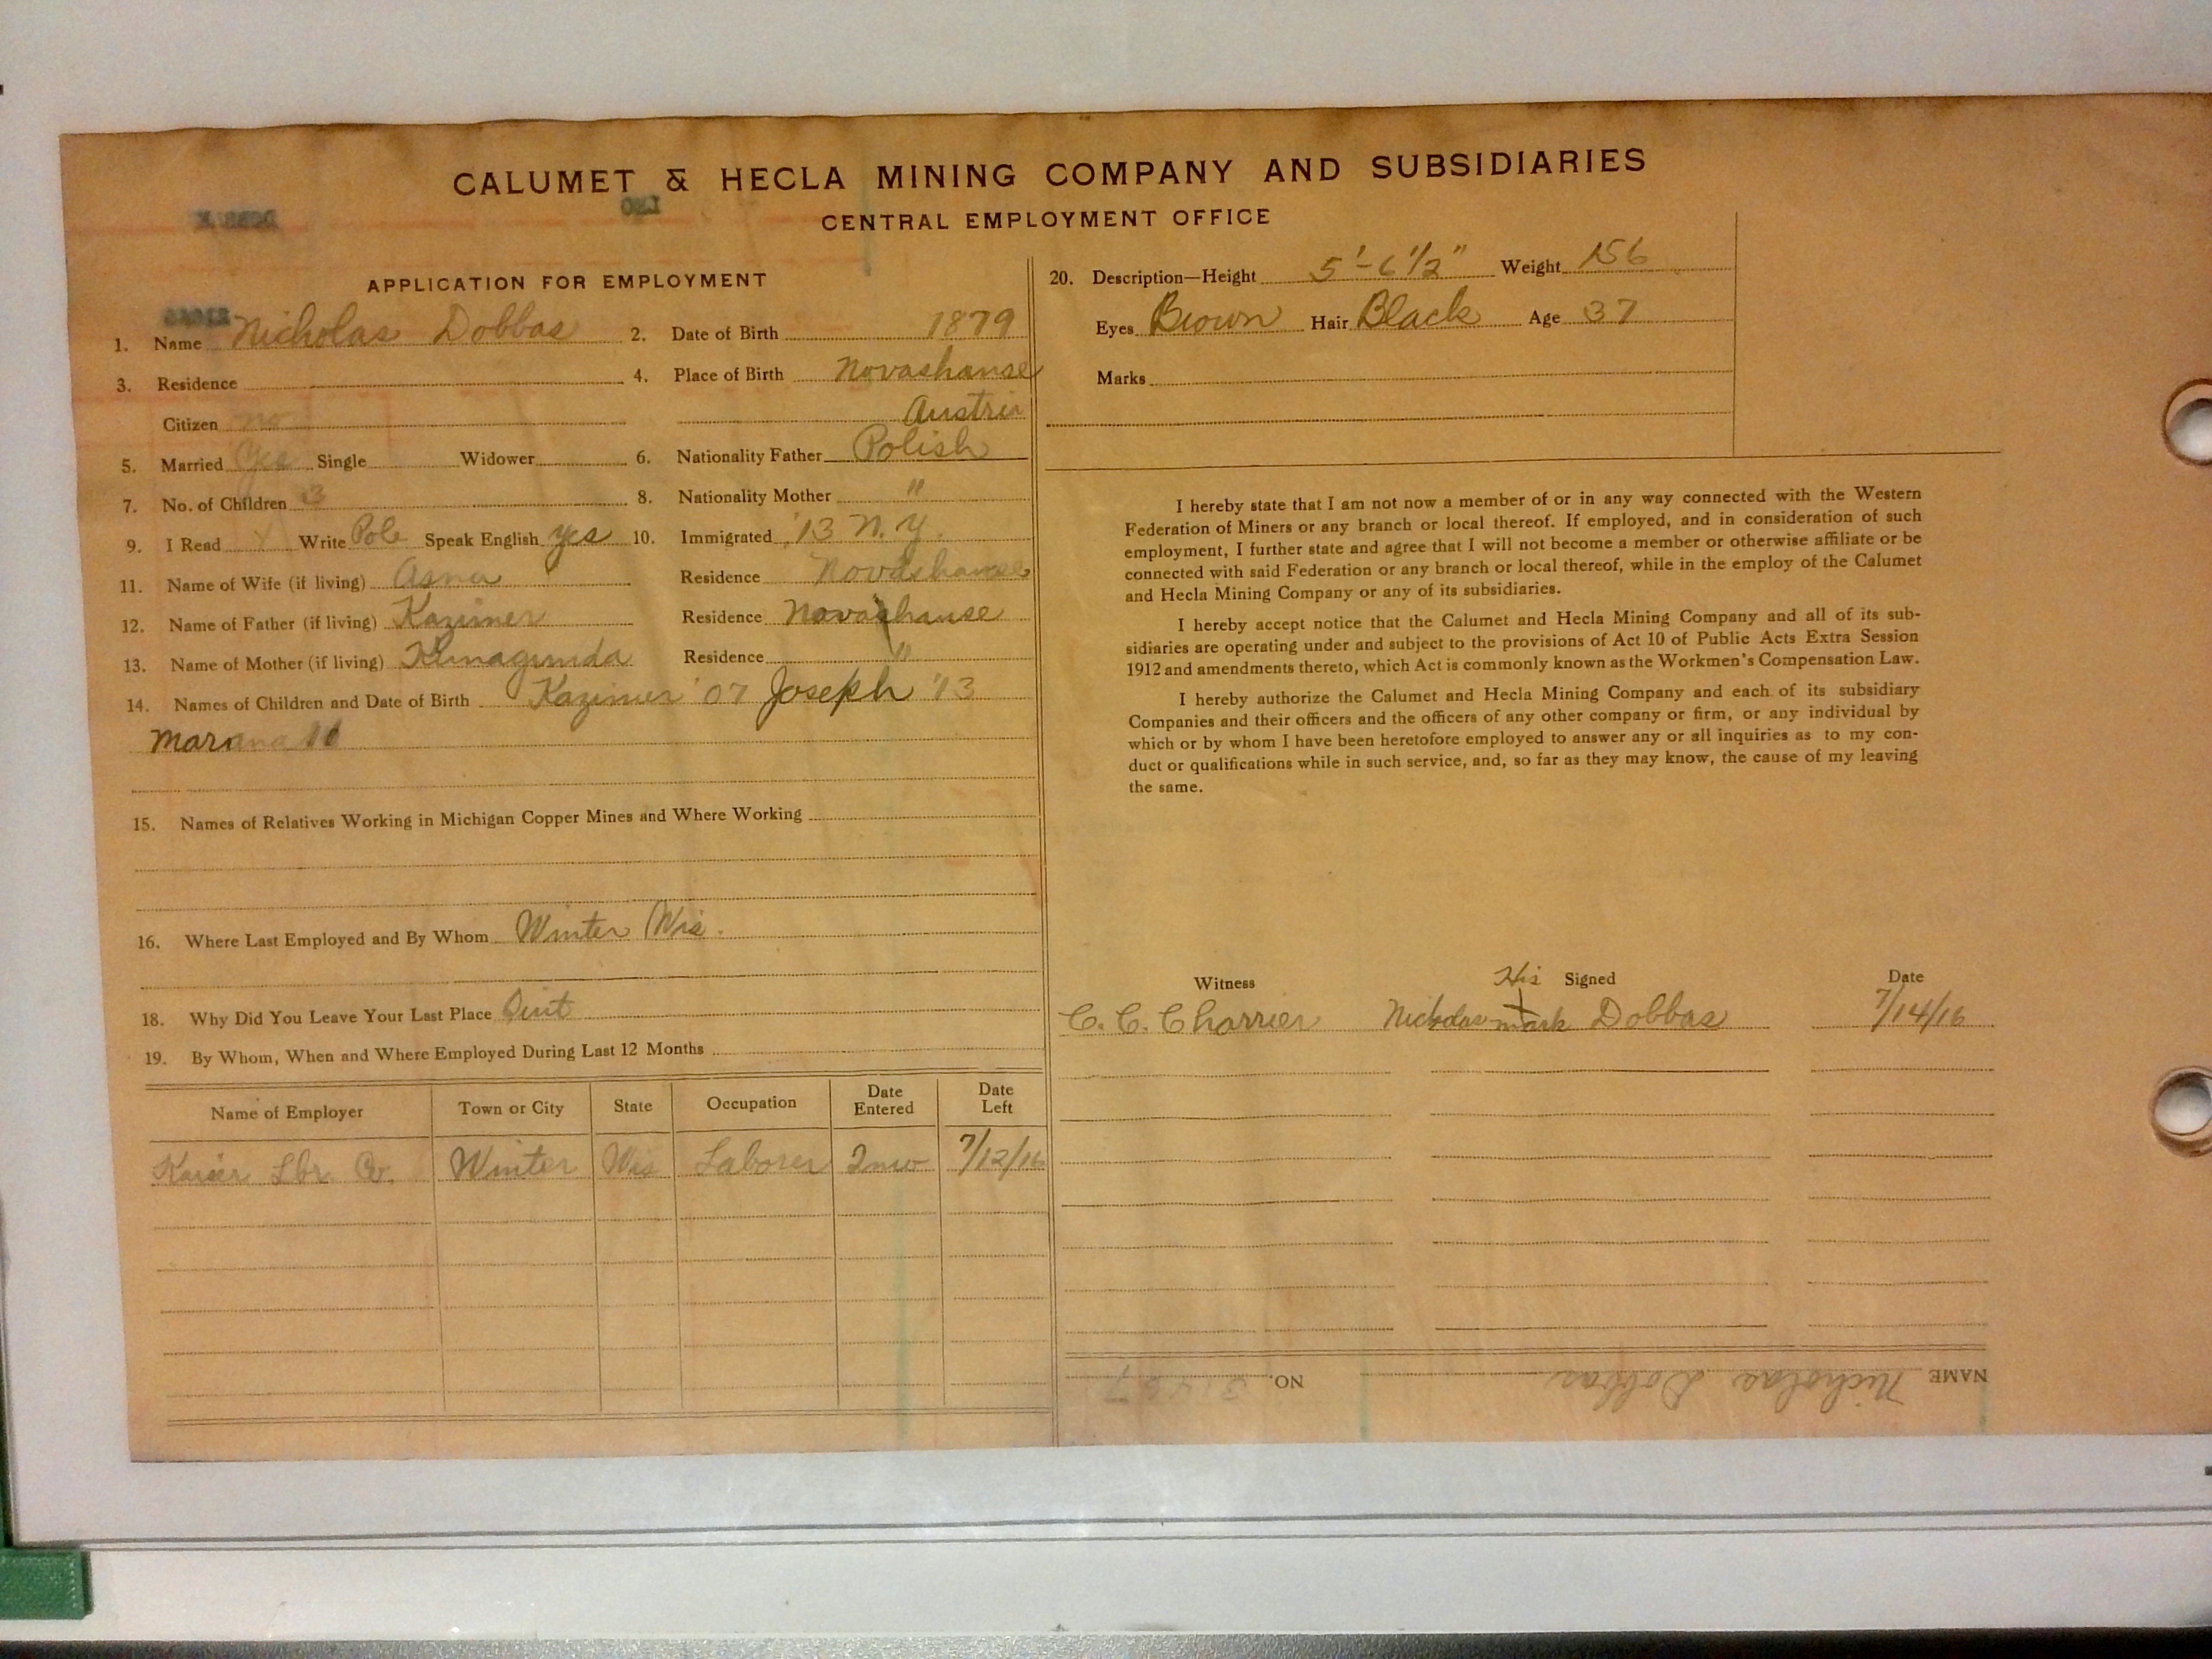 CALUMET & HECLA MINING COMPANY AND SUBSIDIARIES
CENTRAL EMPLOYMENT OFFICE
APPLICATION FOR EMPLOYMENT
1. Name Nicholas Dobbas 2. Date of Birth 1879
3. Residence 4. Place of Birth Novashanse
Citizen no Austria
5. Married Yes Single Widower 6. Nationality Father Polish
7. No. of Children 3 8. Nationality Mother "
9. I Read Write Pole Speak English yes 10. Immigrated '13 N.Y.
11. Name of Wife (if living) Residence Novashanse
12. Name of Father (if living) Kazimer Residence Novashanse
13. Name of Mother (if living) Residence "
14. Names of Children and Date of Birth Kazimer '07 Joseph '13
15. Names of Relatives Working in Michigan Copper Mines and Where Working
16. Where Last Employed and By Whom Winter Wis.
18. Why Did You Leave Your Last Place Quit
19. By Whom, When and Where Employed During Last 12 Months
Name of Employer Town or City State Occupation Date Entered Date Left
Kaiser Lbr. Co. Winter Wis Laborer 2mo 7/12/16
20. Description—Height 5'-6 1/2" Weight 156
Eyes Brown Hair Black Age 37
Marks
I hereby state that I am not now a member of or in any way connected with the Western
Federation of Miners or any branch or local thereof. If employed, and in consideration of such
employment, I further state and agree that I will not become a member or otherwise affiliate or be
connected with said Federation or any branch or local thereof, while in the employ of the Calumet
and Hecla Mining Company or any of its subsidiaries.
I hereby accept notice that the Calumet and Hecla Mining Company and all of its sub-
sidiaries are operating under and subject to the provisions of Act 10 of Public Acts Extra Session
1912 and amendments thereto, which Act is commonly known as the Workmen's Compensation Law.
I hereby authorize the Calumet and Hecla Mining Company and each of its subsidiary
Companies and their officers and the officers of any other company or firm, or any individual by
which or by whom I have been heretofore employed to answer any or all inquiries as to my con-
duct or qualifications while in such service, and, so far as they may know, the cause of my leaving
the same.
Witness His Signed Date
C. C. Charrier Nicholas mark Dobbas 7/14/16
NAME Nicholas Dobbas NO.